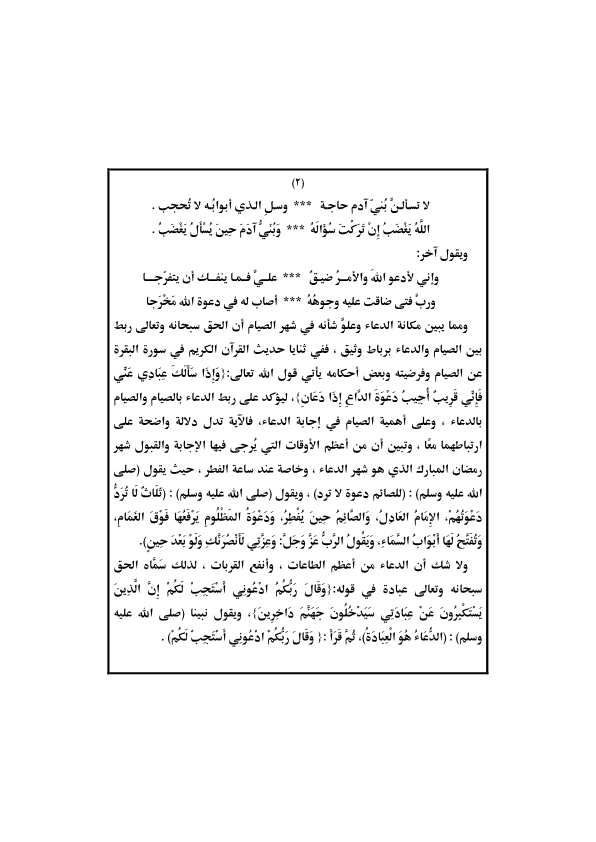 (٢)
لا تسألنَّ بُنيّ آدم حاجة *** وسلِ الذي أبوابُه لا تُحجب .
اللَّهُ يَغْضَبُ إِنْ تَرَكْتَ سُؤَالَهُ *** وَبُنَيُّ آدَمَ حِينَ يُسْأَلُ يَغْضَبُ .
ويقول آخر:
وإني لأدعو اللهَ والأمــرُ ضيـقٌ *** علـيَّ فـمـا ينفـك أن يتفرّجـــا
وربَّ فتى ضاقت عليه وجوهُهُ *** أصاب له في دعوة الله مَخْرَجا
ومما يبين مكانة الدعاء وعلوَّ شأنه في شهر الصيام أن الحق سبحانه وتعالى ربط
بين الصيام والدعاء برباط وثيق ، ففي ثنايا حديث القرآن الكريم في سورة البقرة
عن الصيام وفرضيته وبعض أحكامه يأتي قول الله تعالى:{وَإِذَا سَأَلَكَ عِبَادِي عَنِّي
فَإِنِّي قَرِيبٌ أُجِيبُ دَعْوَةَ الدَّاعِ إِذَا دَعَانِ}، ليؤكد على ربط الدعاء بالصيام والصيام
بالدعاء ، وعلى أهمية الصيام في إجابة الدعاء، فالآية تدل دلالة واضحة على
ارتباطهما معًا ، وتبين أن من أعظم الأوقات التي يُرجى فيها الإجابة والقبول شهر
رمضان المبارك الذي هو شهر الدعاء ، وخاصة عند ساعة الفطر ، حيث يقول (صلى
الله عليه وسلم) : (للصائم دعوة لا ترد) ، ويقول (صلى الله عليه وسلم) : (ثَلَاثٌ لَا تُرَدُّ
دَعْوَتُهُمْ، الإِمَامُ العَادِلُ، وَالصَّائِمُ حِينَ يُفْطِرُ، وَدَعْوَةُ المَظْلُومِ يَرْفَعُهَا فَوْقَ الغَمَامِ،
وَتُفَتَّحُ لَهَا أَبْوَابُ السَّمَاءِ، وَيَقُولُ الرَّبُّ عَزَّ وَجَلَّ: وَعِزَّتِي لَأَنْصُرَنَّكِ وَلَوْ بَعْدَ حِينٍ).
ولا شك أن الدعاء من أعظم الطاعات ، وأنفع القربات ، لذلك سَمَّاه الحق
سبحانه وتعالى عبادة في قوله:{وَقَالَ رَبُّكُمُ ادْعُونِي أَسْتَجِبْ لَكُمْ إِنَّ الَّذِينَ
يَسْتَكْبِرُونَ عَنْ عِبَادَتِي سَيَدْخُلُونَ جَهَنَّمَ دَاخِرِينَ}، ويقول نبينا (صلى الله عليه
وسلم) : (الدُّعَاءُ هُوَ الْعِبَادَةُ)، ثُمَّ قَرَأَ :{ وَقَالَ رَبُّكُمْ ادْعُونِي أَسْتَجِبْ لَكُمْ) .